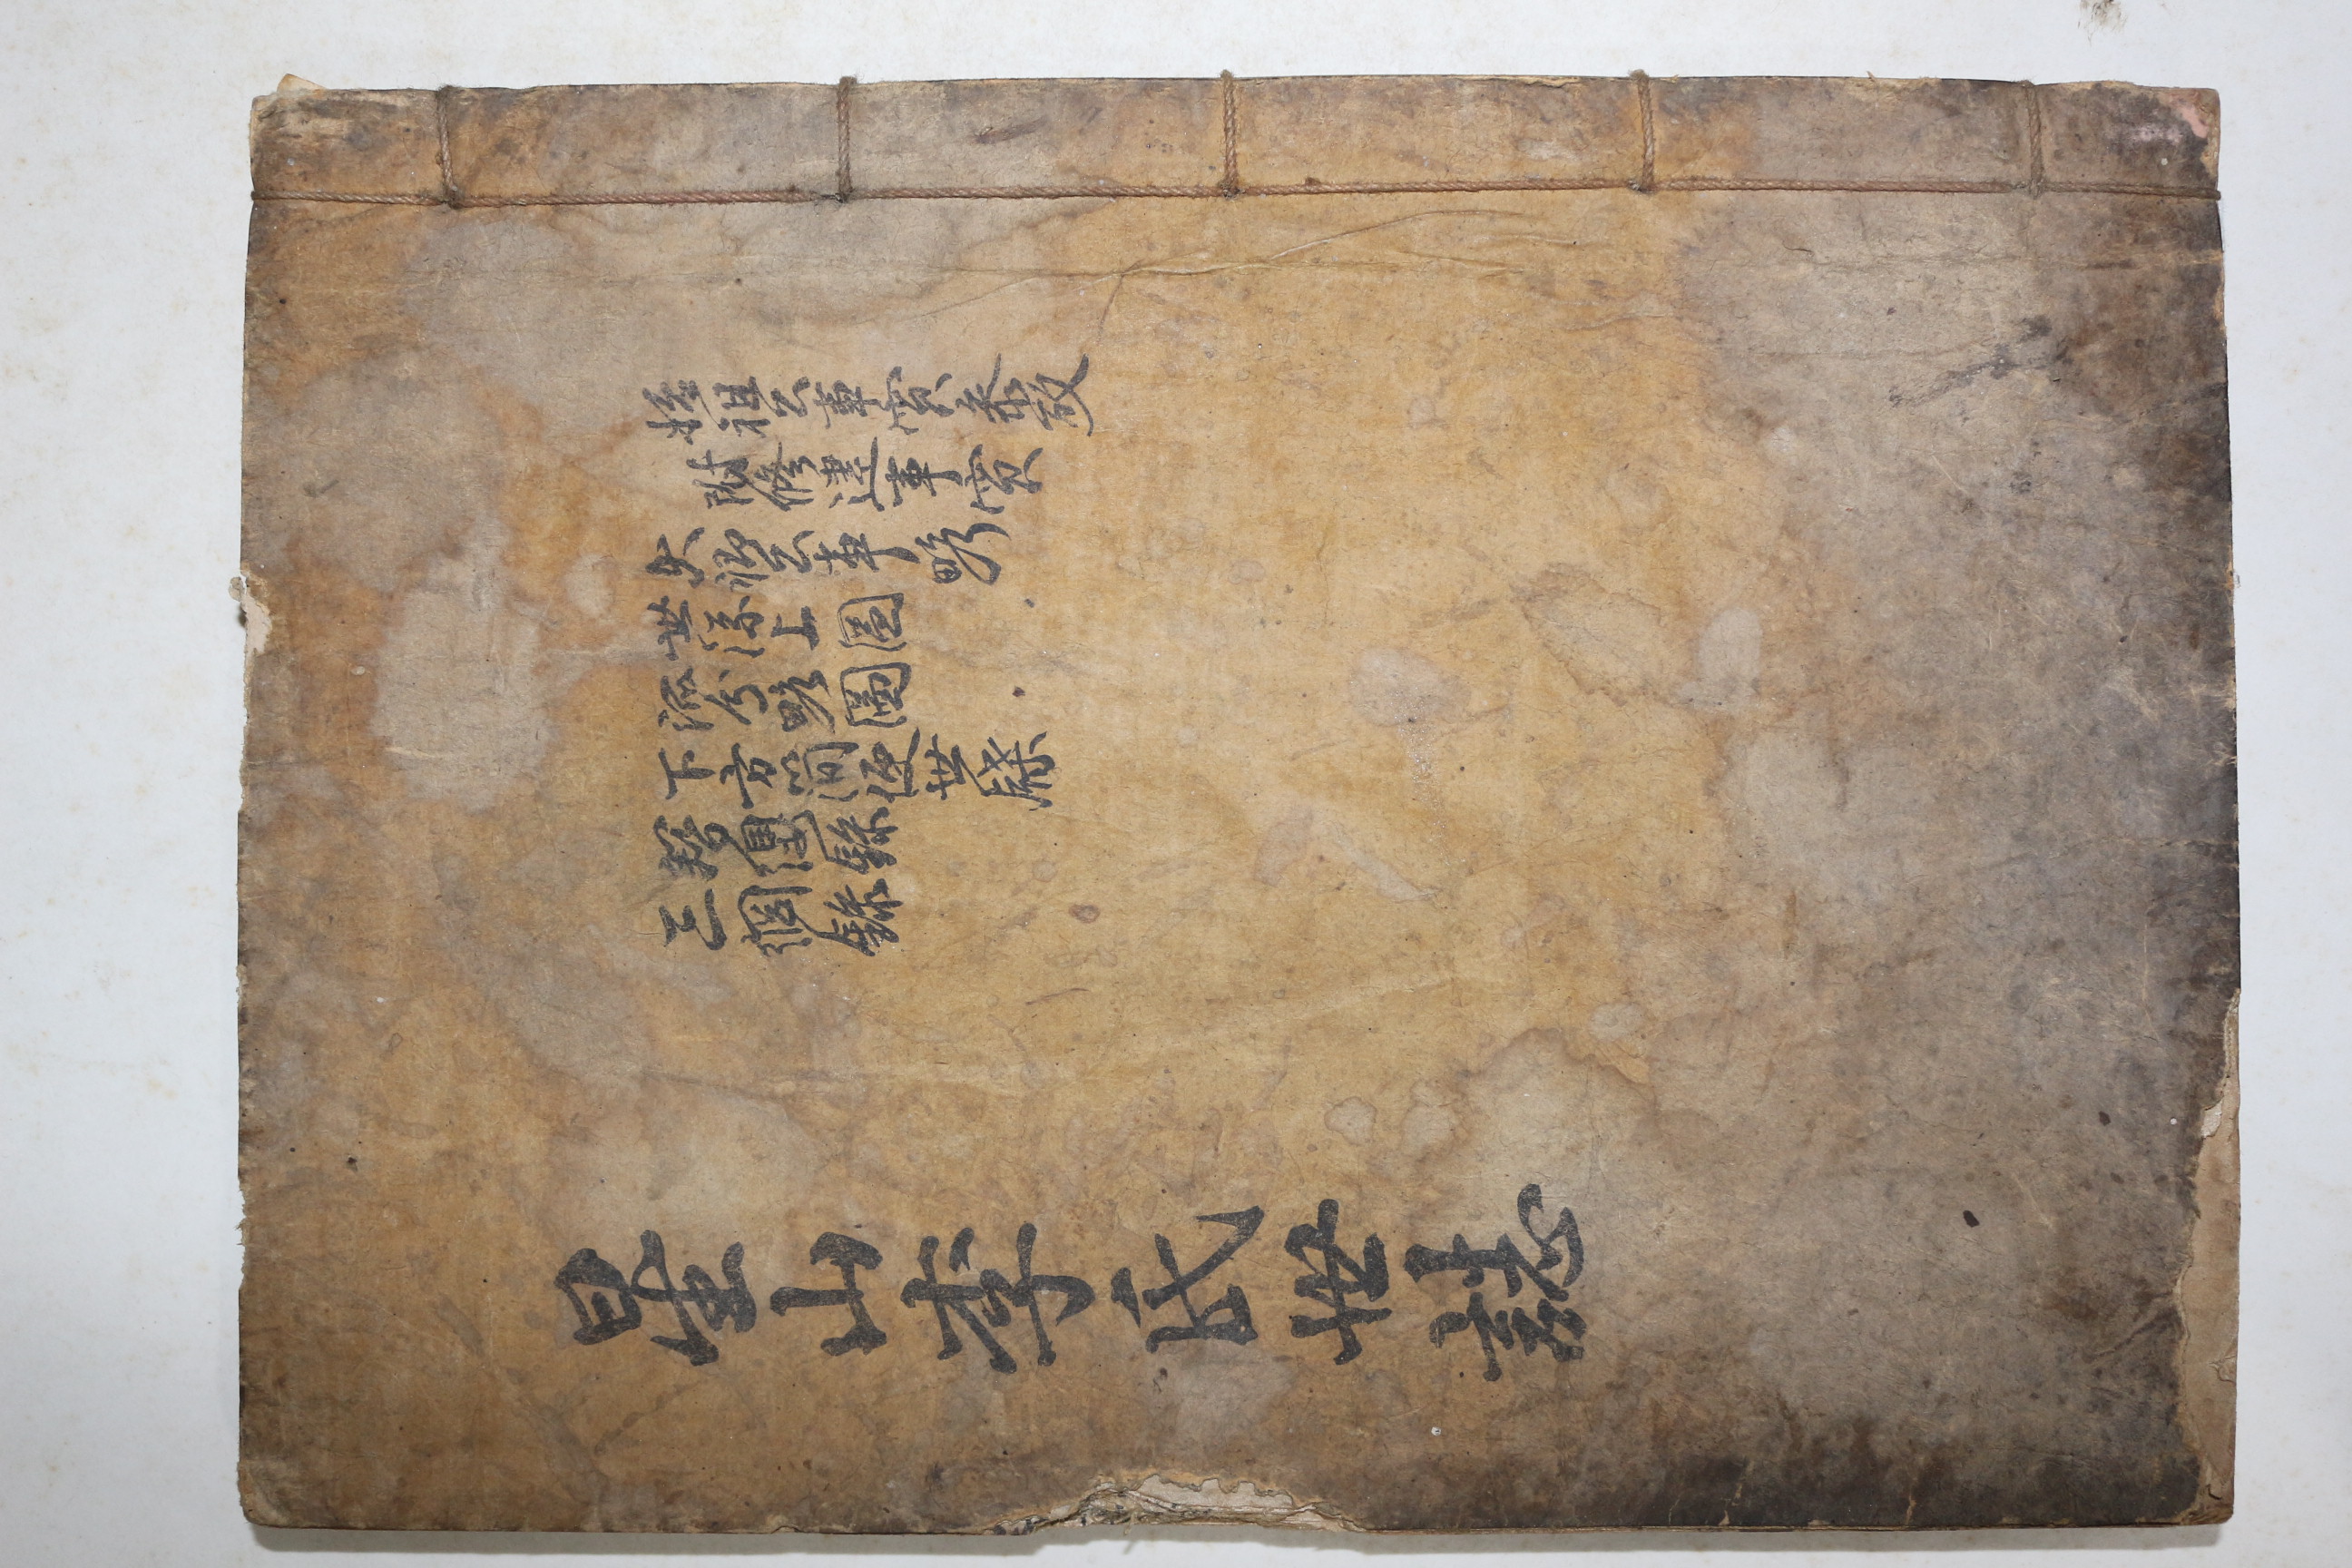 始祖公事實參攷
附修建事實
大卿公事略
世係上圖
派分略圖
下方簡便世牒
簪纓錄
三綱錄
星山李氏世誌